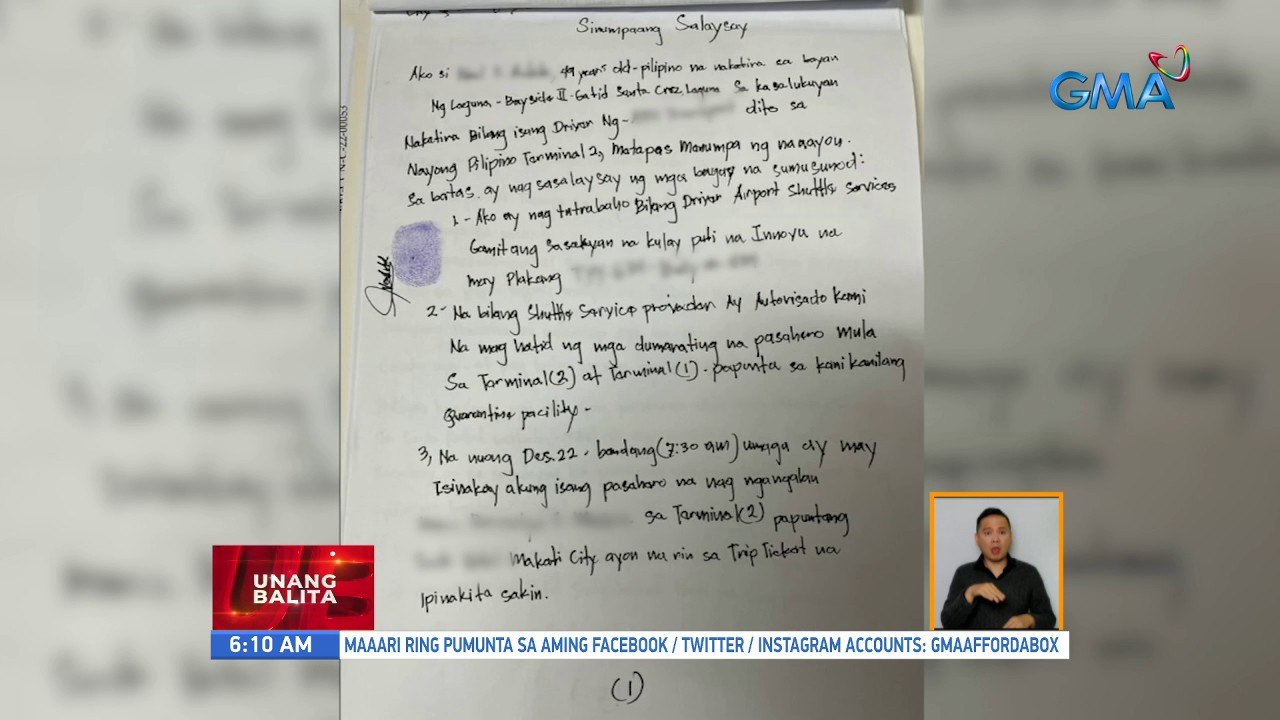 Sinumpaang Salaysay
Ako si 49 years old-pilipino na nakatira sa bayan
Ng Laguna, - Bayside II-Gatid Santa Cruz, Laguna Sa kasalukuyan
Nakatira Bilang isang Driver Ng- dito sa
Nayong Pilipino Terminal 2, Matapos Manumpa ng naaayou.
Sa batas. ay nag sasalaysay ng mga bagay na sumusunod:
1- Ako ay nag tatrabaho Bilang Driver Airport Shuttle Services
Gamit ang sasakyan na kulay puti na Innova na
may Plakang
2- Na bilang Shuttle Service provader Ay Autorisado kami
Na mag hatid ng mga dumarating na pasahero mula
Sa Terminal (2) at Terminal (1) - papunta sa kani kanilang
Quarantine pacility -
3, Na nuong Des. 22 - bandang (7:30 am) umaga ay may
Isinakay akung isang pasahero na nag ngangalan
sa Terminal (2) papuntang
Makati City ayon na rin sa Trip Ticket na
Ipinakita sakin.
(1)
GMA
UNANG
BALITA
6:10 AM MAAARI RING PUMUNTA SA AMING FACEBOOK / TWITTER / INSTAGRAM ACCOUNTS: GMAAFFORDABOX